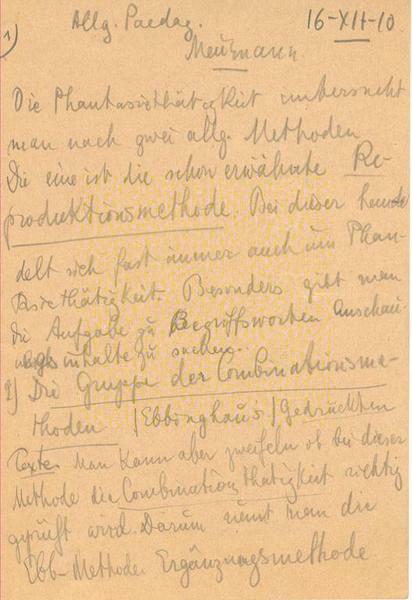 1)
Allg. Paedag. 16-XII-10
Meumann.
Die Phantasiethätigkeit untersucht
man nach zwei allg. Methoden
Die eine ist die schon erwähnte Re-
produktionsmethode. Bei dieser handelt
delt sich fast immer auch um Phan-
tasiethätigkeit. Besonders gibt man
die Aufgabe zu Begriffsworten Anschau-
ungsinhalte zu suchen.
2) Die Gruppe der Combinationsme-
thoden |Ebbinghaus| Gedruckten
Texte. Man kann aber zweifeln ob bei dieser
Methode die Combinationsthätigkeit richtig
geprüft wird. Darum nennt man die
Ebb-Methode Ergänzungsmethode